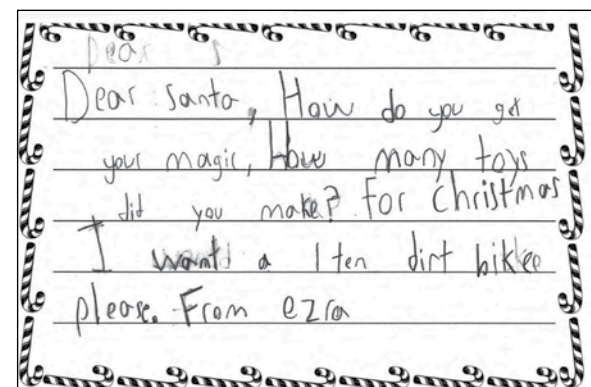 Dear s
Dear Santa, How do you get
your magic, How many toys
did you make? For christmas
I want a 1 ten dirt bikee
please. From ezra